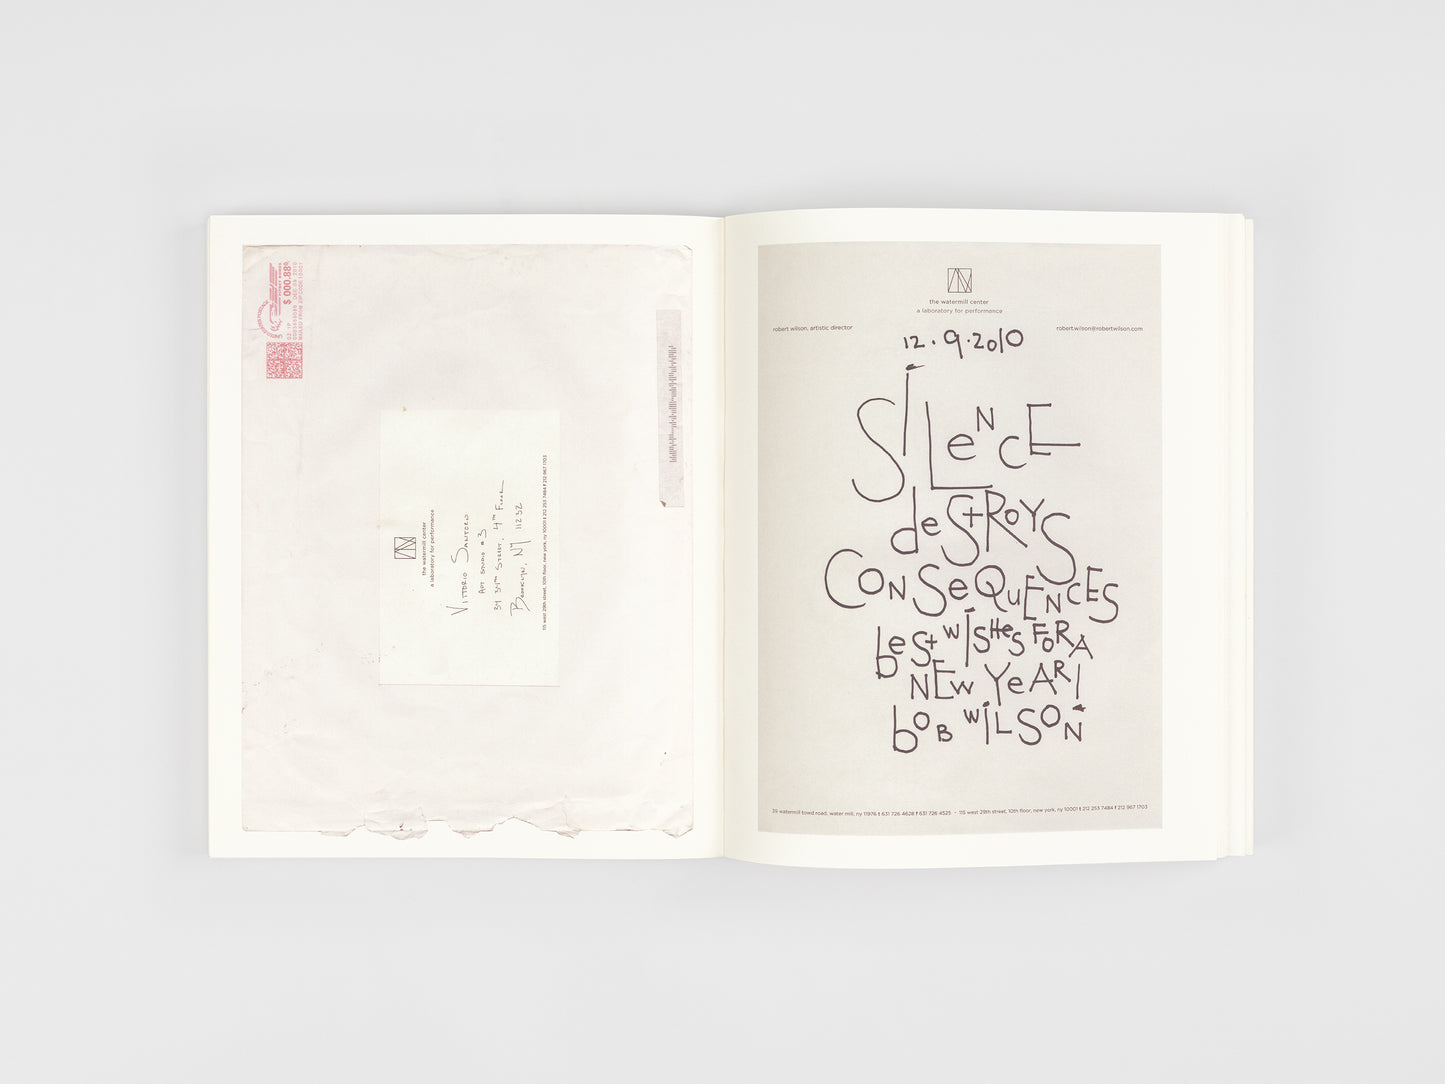 $ 000.88⁰
02 1P
MAILED FROM ZIP CODE 10001
the watermill center
a laboratory for performance
Vittorio Santoro
Apt Studio #3
34 34th Street, 4th Floor
Brooklyn, NY 11232
115 west 29th street, 10th floor, new york, ny 10001 t 212 253 7484 f 212 967 1703
the watermill center
a laboratory for performance
robert wilson, artistic director
robert.wilson@robertwilson.com
12.9.2010
SiLeNcE
deStRoYS
CoNSeQuENCES
beSt wiSHeS FoR A
NEw YeAR!
boB wiLSoN
39 watermill towd road, water mill, ny 11976 t 631 726 4628 f 631 726 4525 • 115 west 29th street, 10th floor, new york, ny 10001 t 212 253 7484 f 212 967 1703